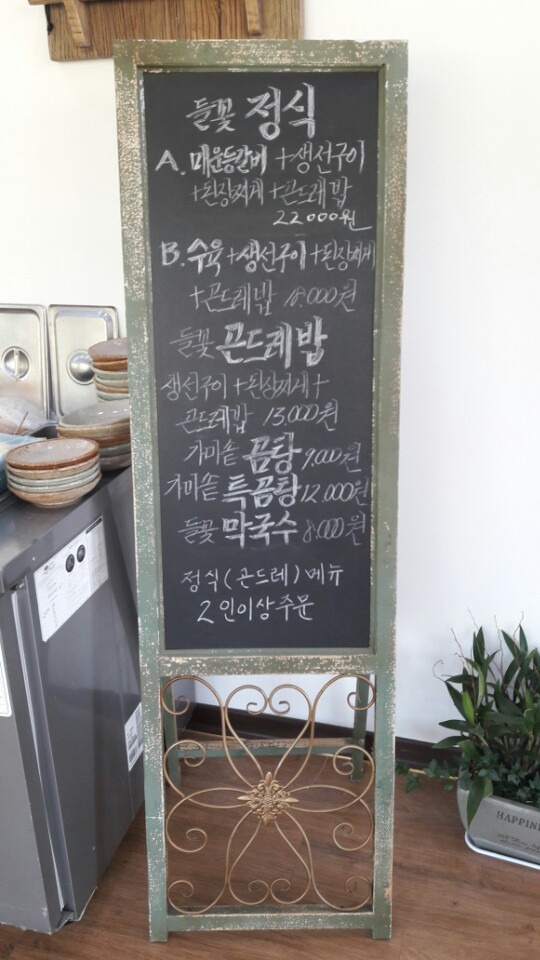 들꽃 정식
A. 매운등갈비 +생선구이
+된장찌게 +곤드레밥
22000원
B. 수육+생선구이+된장찌게
+곤드레밥 18.000원
들꽃 곤드레밥
생선구이+된장찌게+
곤드레밥 13,000원
가마솥 곰탕 9,000원
가마솥 특곰탕 12,000원
들꽃 막국수 8,000원
정식(곤드레) 메뉴
2인이상주문
HAPPINE